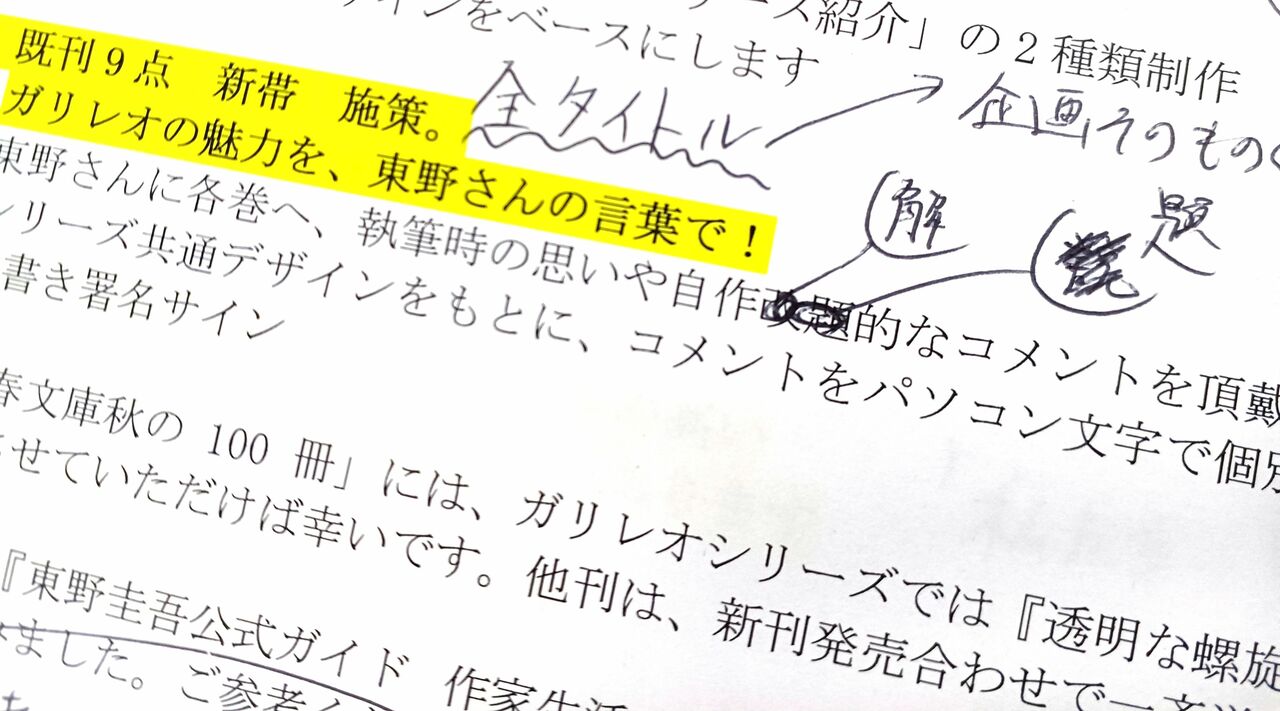 ーズ紹介」の2種類制作
インをベースにします
既刊9点　新帯　施策。
全タイトル
企画そのもの
ガリレオの魅力を、東野さんの言葉で！
解
題
東野さんに各巻へ、執筆時の思いや自作改題的なコメントを頂戴
リーズ共通デザインをもとに、コメントをパソコン文字で個別
書き署名サイン
春文庫秋の 100 冊」には、ガリレオシリーズでは『透明な螺旋
させていただけば幸いです。他刊は、新刊発売合わせで一斉
『東野圭吾公式ガイド　作家生活
みました。ご参考